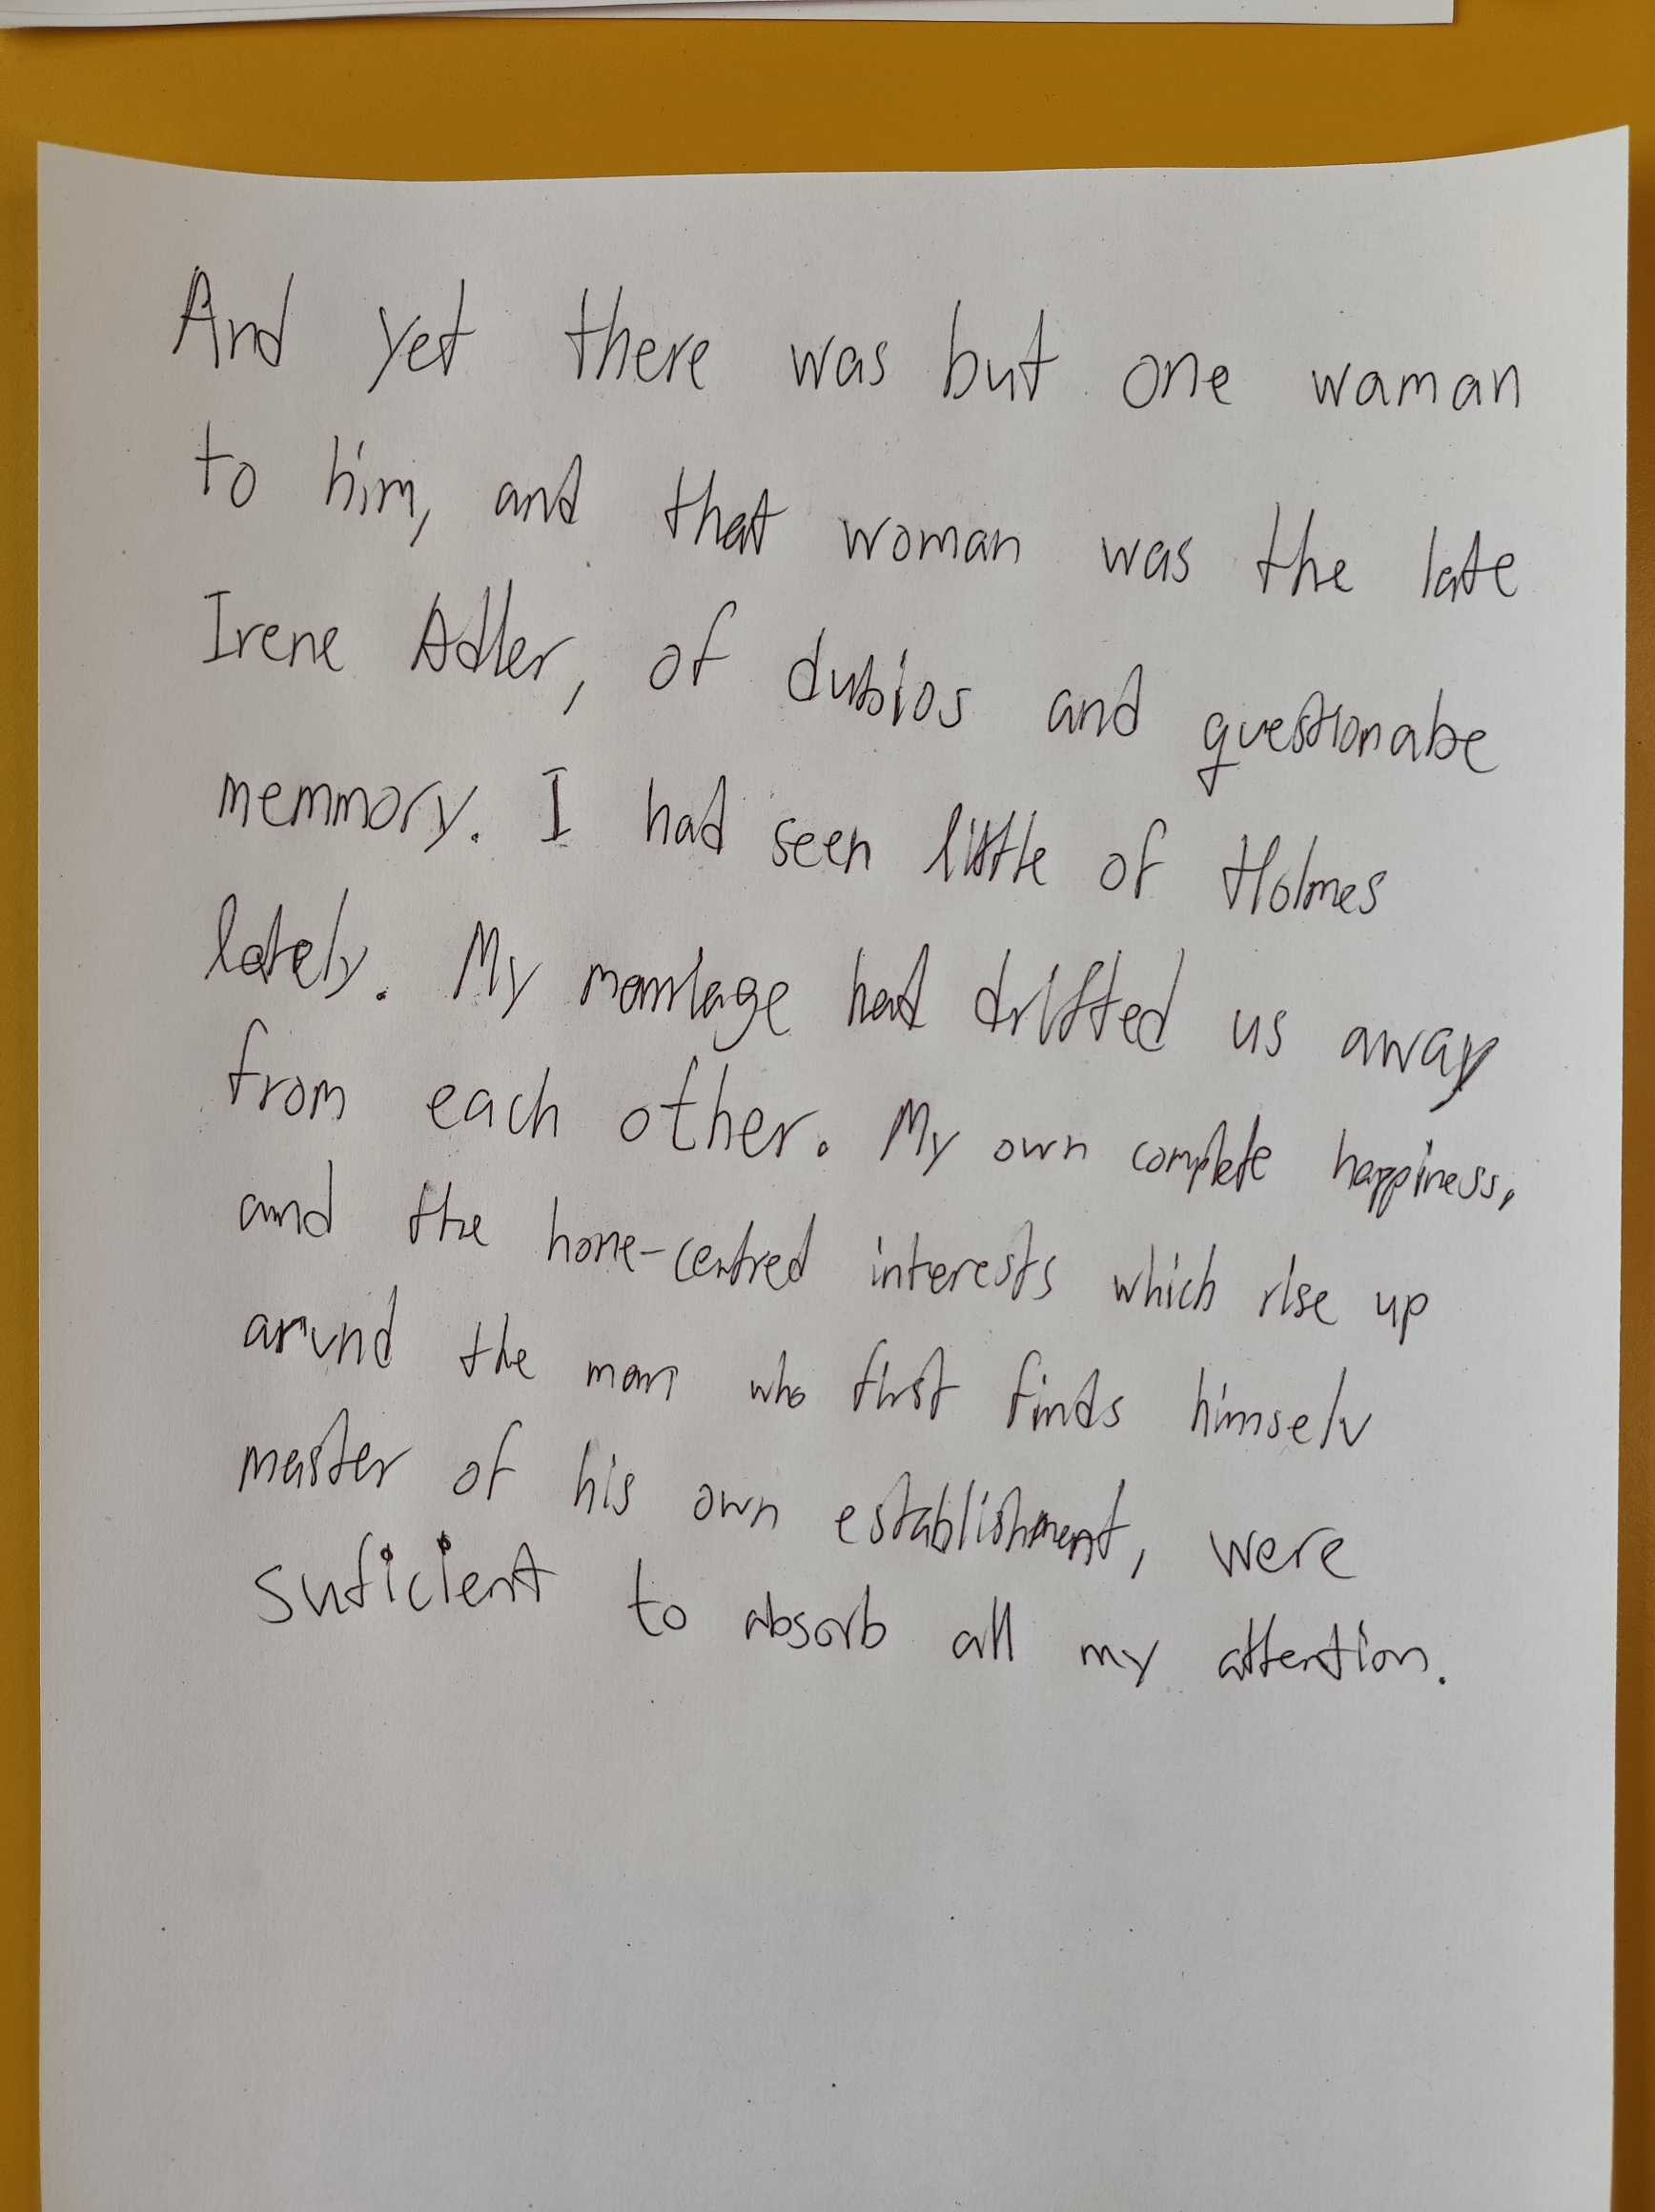 And yet there was but one waman
to him, and that woman was the late
Irene Adler, of dubios and questionabe
memmory. I had seen little of Holmes
lately. My marriage had drifted us away
from each other. My own complete happiness,
and the home-centred interests which rise up
arund the man who first finds himselv
master of his own establishment, were
suficient to absorb all my attention.